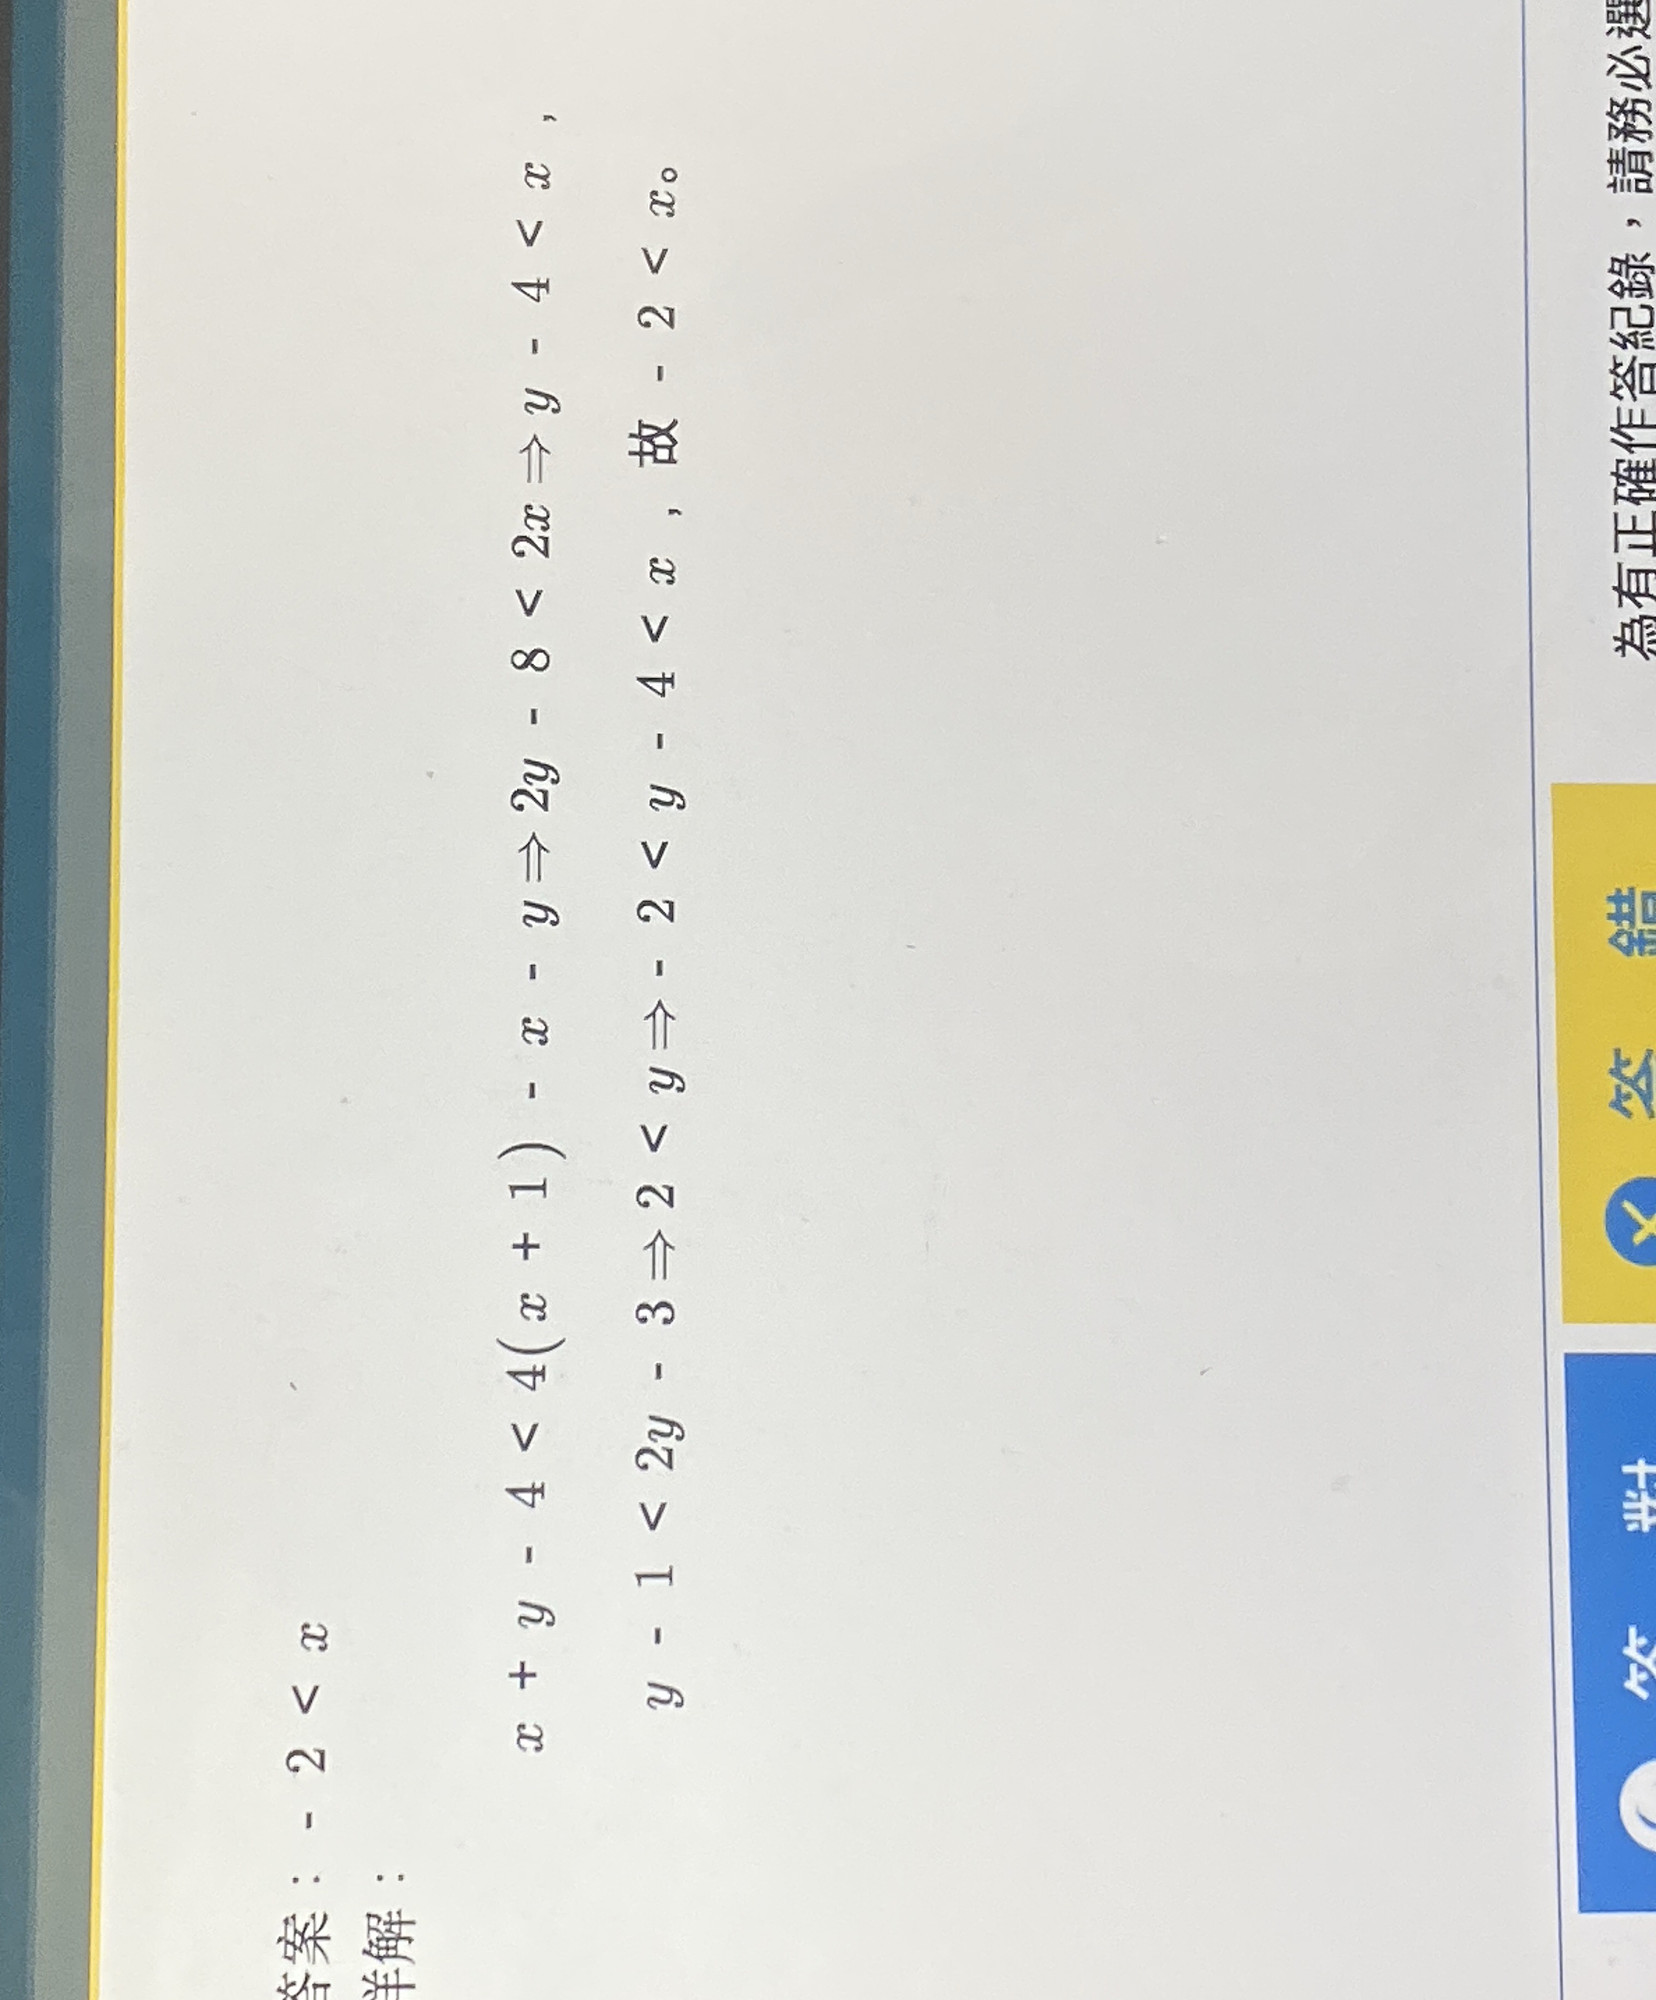 答案：- 2 < x
詳解：
x + y - 4 < 4(x + 1) - x - y ⇒ 2y - 8 < 2x ⇒ y - 4 < x，
y - 1 < 2y - 3 ⇒ 2 < y ⇒ - 2 < y - 4 < x，故 - 2 < x。
答 對
答 錯
為有正確作答紀錄，請務必選